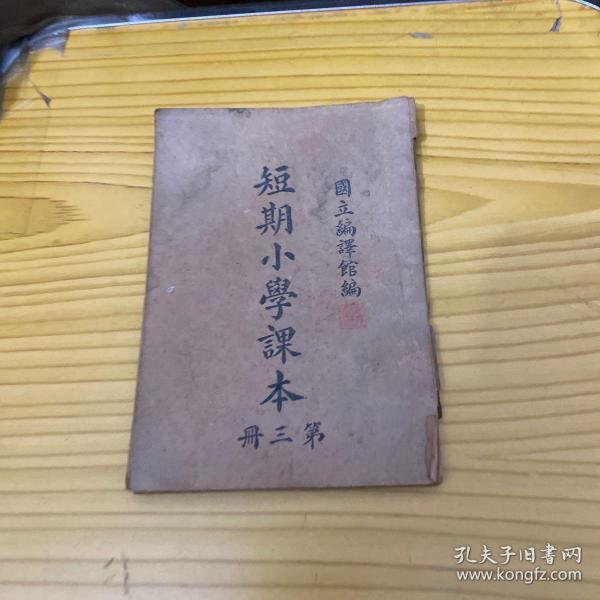 國立編譯館編
短期小學課本
第三冊
孔夫子旧书网
www.kongfz.com